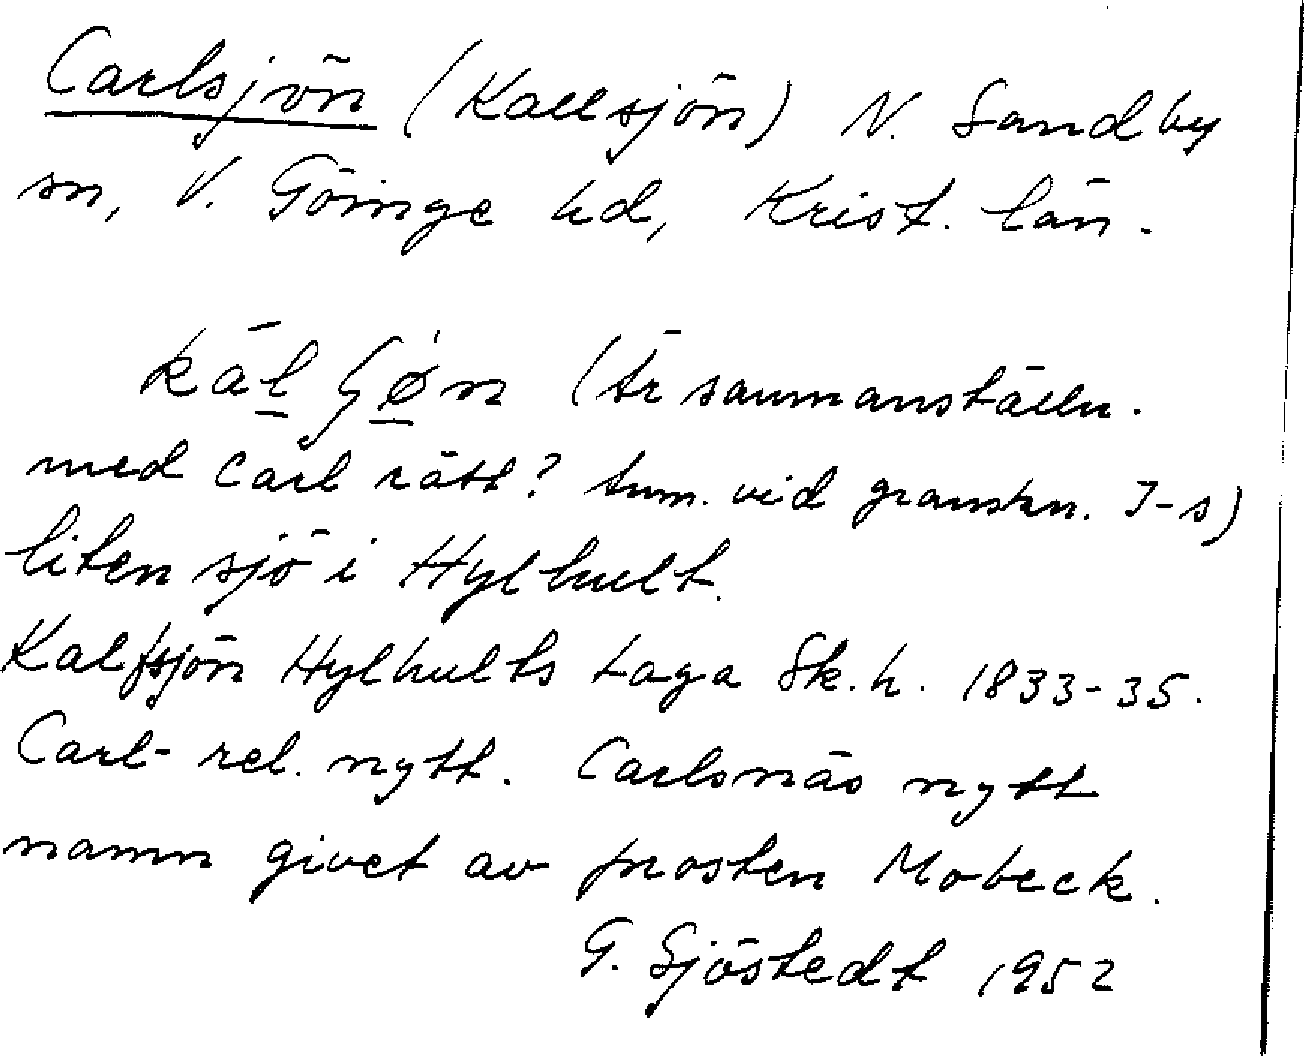 Carlsjön (Kallsjön) N. Sandby
sn, V. Göinge hd, Krist. län.
kāl ʃǿn (Är sammanställn.
med Carl rätt? Anm. vid granskn. I-s)
liten sjö i Hylhult.
Kalfsjön Hylhults taga Sk.h. 1833-35.
Carl- rel. nytt. Carlsnäs nytt
namn givet av prosten Mobeck.
G. Sjöstedt 1952